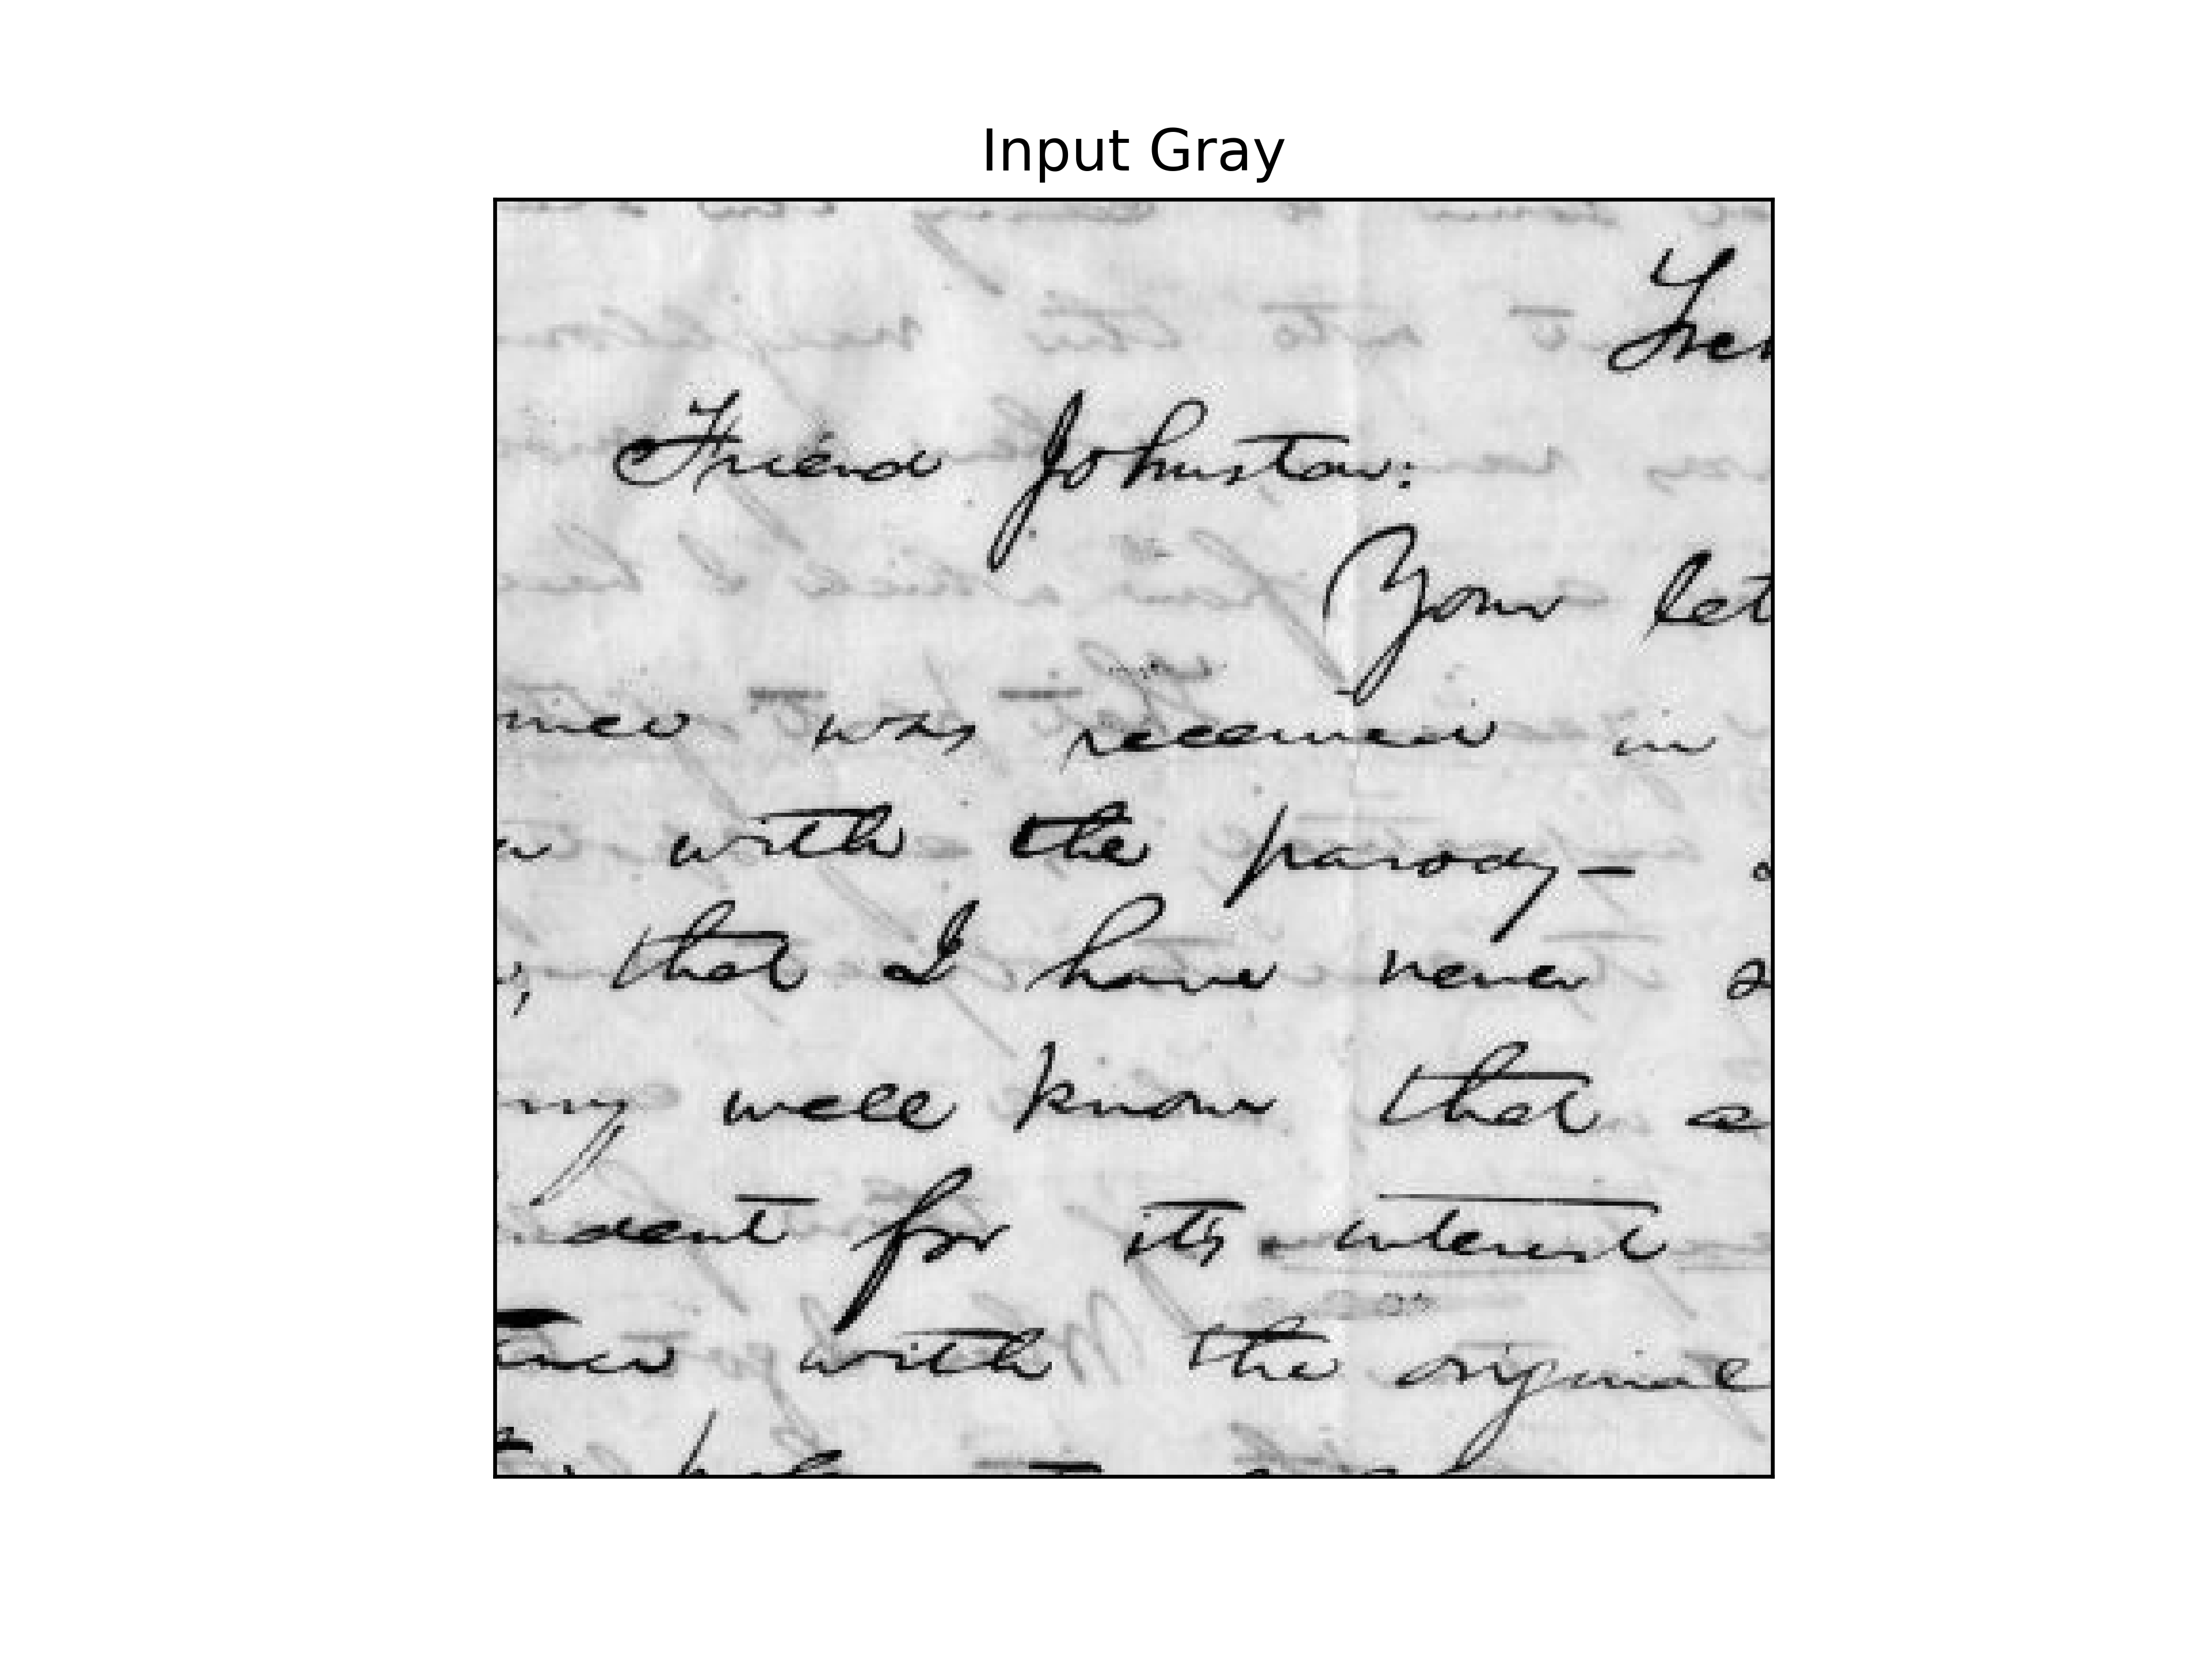 Input Gray
Friend Johnston:
Your let
was received in
with the parody—
, that I have never s
well know that a
dent for its interest
with the original